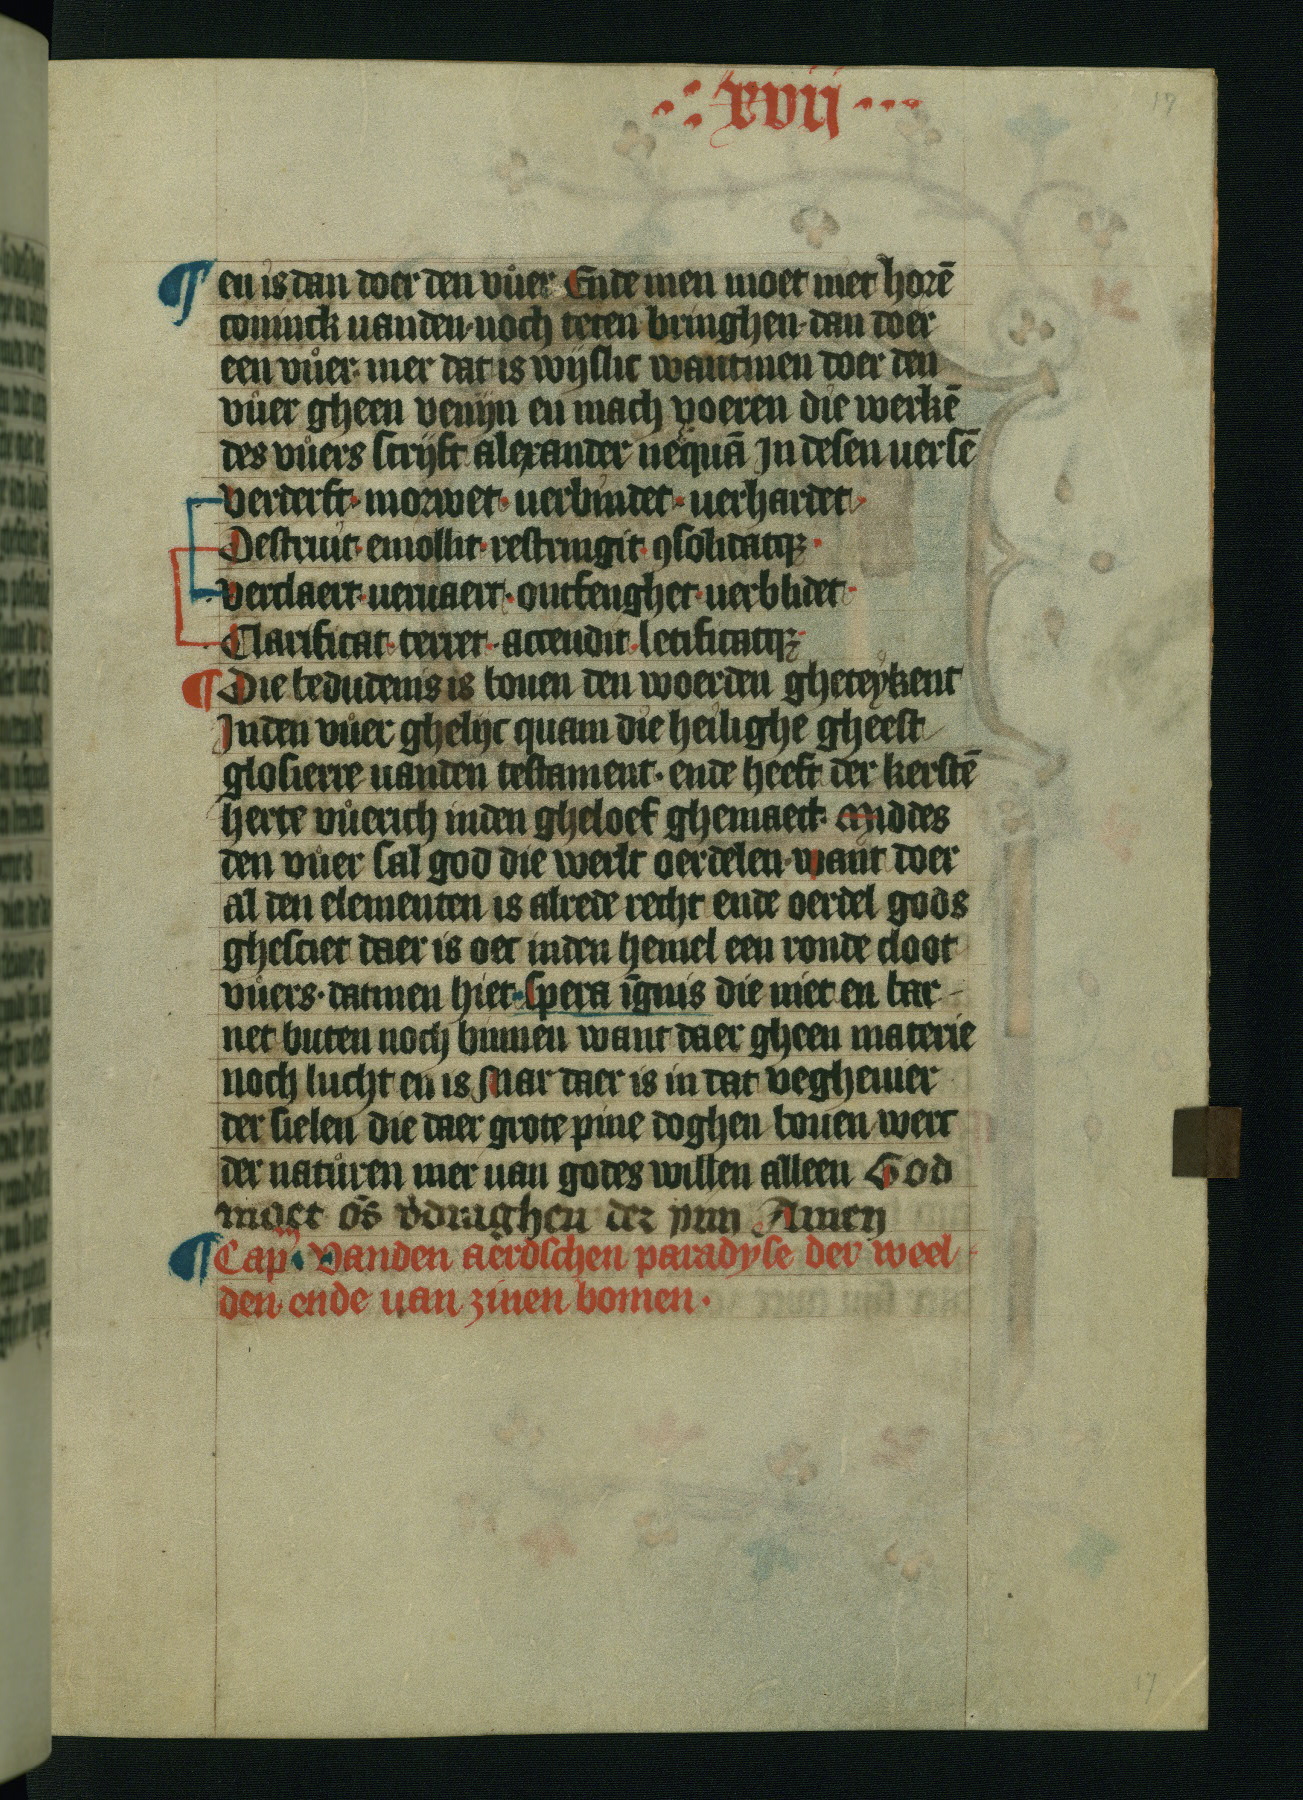 xvij
17
en is dan doer den vůer Ende men moet met horē
coninck uanden noch teten bringhen dan doer
een vůer mer dat is wijslic wantmen doer den
vůer gheen venijn en mach voeren die werkē
des vůers scrijft alexander nequā In desen uersē
verderft · morwet · uerbindet · uerhardet
Destruit · emollit · restringit · ꝯsolidatqꝫ ·
verclaert · ueruaert · ontfenghet · uerblidet ·
Clarificat · terret · accendit · letificatqꝫ
¶ Die bedudenis is bouen den woerden gheteykent
Inden vůer ghelijc quam die heilighe gheest
glosierre uanden testament · ende heeft der kerstē
herte vůerich inden gheloef ghemaect · Middes
den vůer sal god die werlt oerdelen · want doer
al den elementen is alrede recht ende oerdel gods
ghesciet daer is oec inden hemel een ronde cloot
vůers · datmen hiet · spera īgnis die niet en bar
net buten noch binnen want daer gheen materie
noch lucht en is Mar daer is in dat vegheuier
der sielen die daer grote pine doghen bouen wert
der natůren mer uan godes willen alleen God
moet ōs v̄draghen der pijn Amen
¶ Cap · Vanden aerdschen paradyse der weel
den · ende uan zinen bomen ·
17